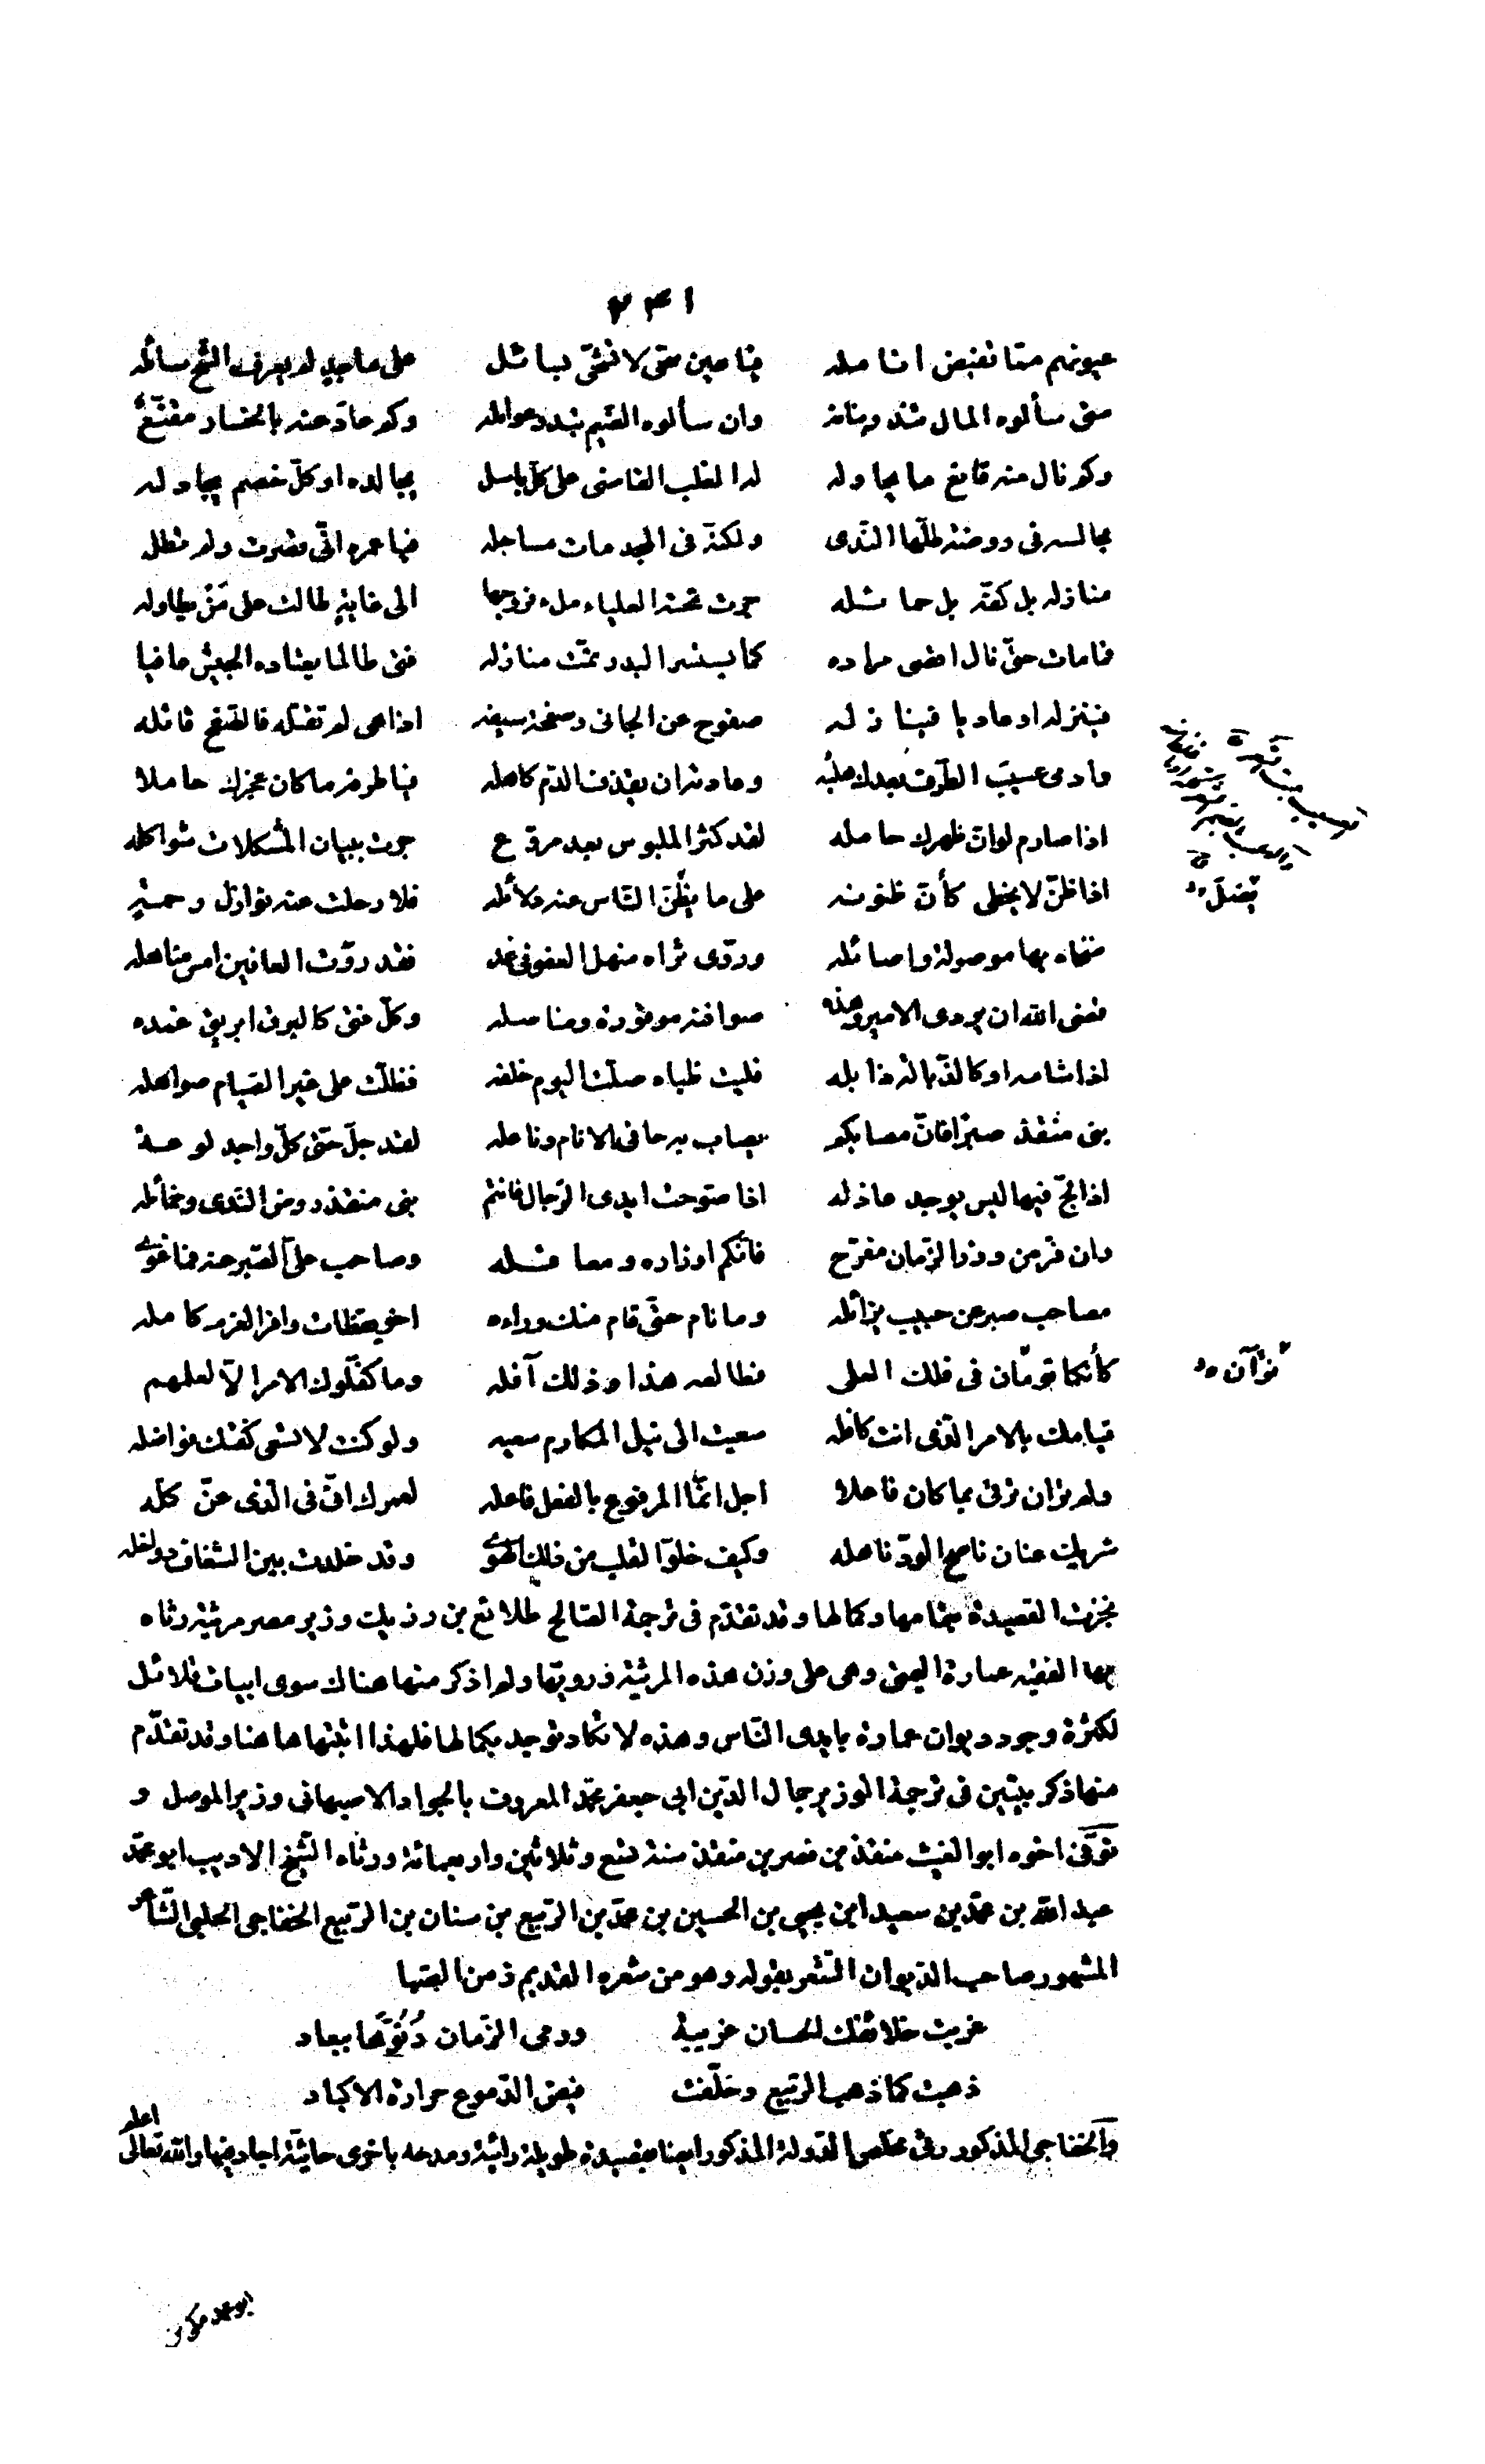 ٢٤١
عيونهم ممّا تفيض انامله فيا عين سحّى لا تشحّى بسائل على ماجد لم يعرف الشحّ سائله
متى سألوه المال تند بنانه وان سألوه الضيم تبدد عوامله وكم عاد عنه بالخسار مقنّع
وكم نال منه قانع ما يحاوله له الغلب القاضى على كلّ باسل يجالده او كلّ خصم يجادله
مجالسه فى روضة طلّها النّدى ولكنّه فى المجد مات مساجله فيا عمره انّى قصرت ولم تطل
منازله بل كفّه بل حمائله جرت تحته العلياء ملء فروجها الى غاية طالت على مَنْ يطاوله
فما مات حتّى نال اقصى مراده كما يستسرّ البدر تمّت منازله فتى طالما يعتاده الجيش عافيا
فينزله او عاديا فينازله صفوح عن الجانى وصفحة سيفه اذا هى لم تقتله فالصّفح قاتله
وادمى عسيب الطّرف بعدك هلبه وعادته ان يقذف الدّم كاهله فيا طرفه ما كان عجزك حاملا
اذا صارم لو انّ ظهرك حامله لقد كثر الملبوس بعد مروّع جرت ببيان المشكلات شواكله
اذا ظنّ لا يخطى كأنّ ظنونه على ما يظنّ النّاس عنه دلائله فلا رحلت عنه نوازل رحمة
ضحاه بها موصولة واصائله وروّى ثراه منهل العفو فى غد فقد روّت العافين امس مناهله
قضى الله ان يردى الامير وهذه صوافنه موفورة ومناصله وكلّ فتى كالبرق ابريق غمده
اذا شامه او كالذّبالة ذابله فليت ظباه صلّت اليوم خلفه فظلّت على غير الصّيام صواهله
بنى منقذ صبرًا فانّ مصابكم يصاب به حافى الانام وناعله لقد جلّ حتّى كلّ واجد لوعة
اذا لجّ فيها ليس يوجد عاذله اذا صوّحت ايدى الرّجال فانتم بنى منقذ روض النّدى وخمائله
وان فرّ من وزر الزّمان مفرّح فانّكم اوزاره ومعاقله وصاحب علىّ الصّبر عنه فما غوى
مصاحب صبر عن حبيب يزائله وما نام حتّى قام منك وراءه اخو يقظات وافر العزم كامله
كأنّكما نوّان فى فلك العلى فطالعه هذا وذلك آفله وما كفّلوك الامر الّا لعلمهم
نوآن
قيامك بالامر الّذى انت كافله سعيت الى نيل المكارم سعيه ولو كنت لا تسعى كفتك فواضله
ولم تر ان ترقى بما كان فاعلا اجل انّما المرفوع بالفعل فاعله لعمرك انّى فى الّذى عنّ كلّه
شريك عنان ناصح الودّ ناحله وكيف خلوّ القلب من ذلك الهوى وقد خلدت بين الشّغاف دواخله
نجزت القصيدة بتمامها وكمالها وقد تقدّم فى ترجمة الصّالح طلائع بن رزيك وزير مصر مرثية رثاه
بها الفقيه عمارة اليمنى وهى على وزن هذه المرثية ورويّها ولم اذكر منها هناك سوى ابيات قلائل
لكثرة وجود ديوان عمارة بايدى النّاس وهذه لا تكاد توجد بكمالها فلهذا اثبتها هاهنا وقد تقدّم
منها ذكر بيتين فى ترجمة الوزير جمال الدّين ابى جعفر محمّد المعروف بالجواد الاصبهانى وزير الموصل و
توفّى اخوه ابو الغيث منقذ بن نصر بن منقذ سنة تسع وثلاثين واربعمائة ورثاه الشّيخ الاديب ابو محمّد
عبد الله بن محمّد بن سعيد ابن يحيى بن الحسين بن محمّد بن الرّبيع بن سنان بن الرّبيع الخفاجى الحلبى الشّاعر
المشهور صاحب الدّيوان الشّعر بقوله وهو من شعره القديم زمن الصّبا
غربت خلائقك الحسان غريبة ورمى الزّمان دُنُوَّها ببعاد
ذهبت كما ذهب الرّبيع وخلّفت فيض الدّموع حرارة الاكباد
والخفاجى المذكور رثى مخلص الدّولة المذكور ايضا بقصيدة طويلة رائيّة ومدحه باخرى حائيّة اجاد فيها والله تعالى اعلم